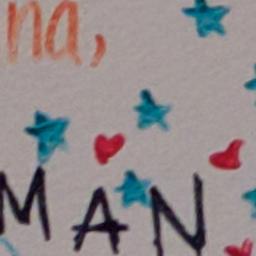 na,
MAN